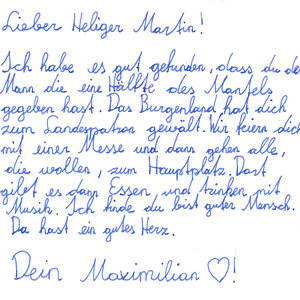 Lieber Heliger Martin!
Ich habe es gut gefunden, dass du de
Mann die eine Hälfte des Mantels
gegeben hast. Das Burgenland hat dich
zum Landespatron gewält. Wir feiern dich
mit einer Messe und dann gehen alle,
die wollen, zum Hauptplatz. Dort
gibt es dann Essen, und trinken mit
Musik. Ich finde du bist guter Mensch.
Du hast ein gutes Herz.
Dein Maximilian ♡!